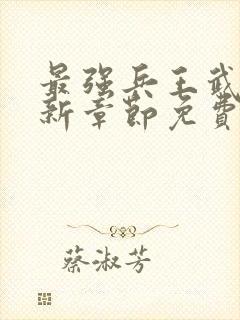 最强兵王武
新章节免费
蔡淑芳